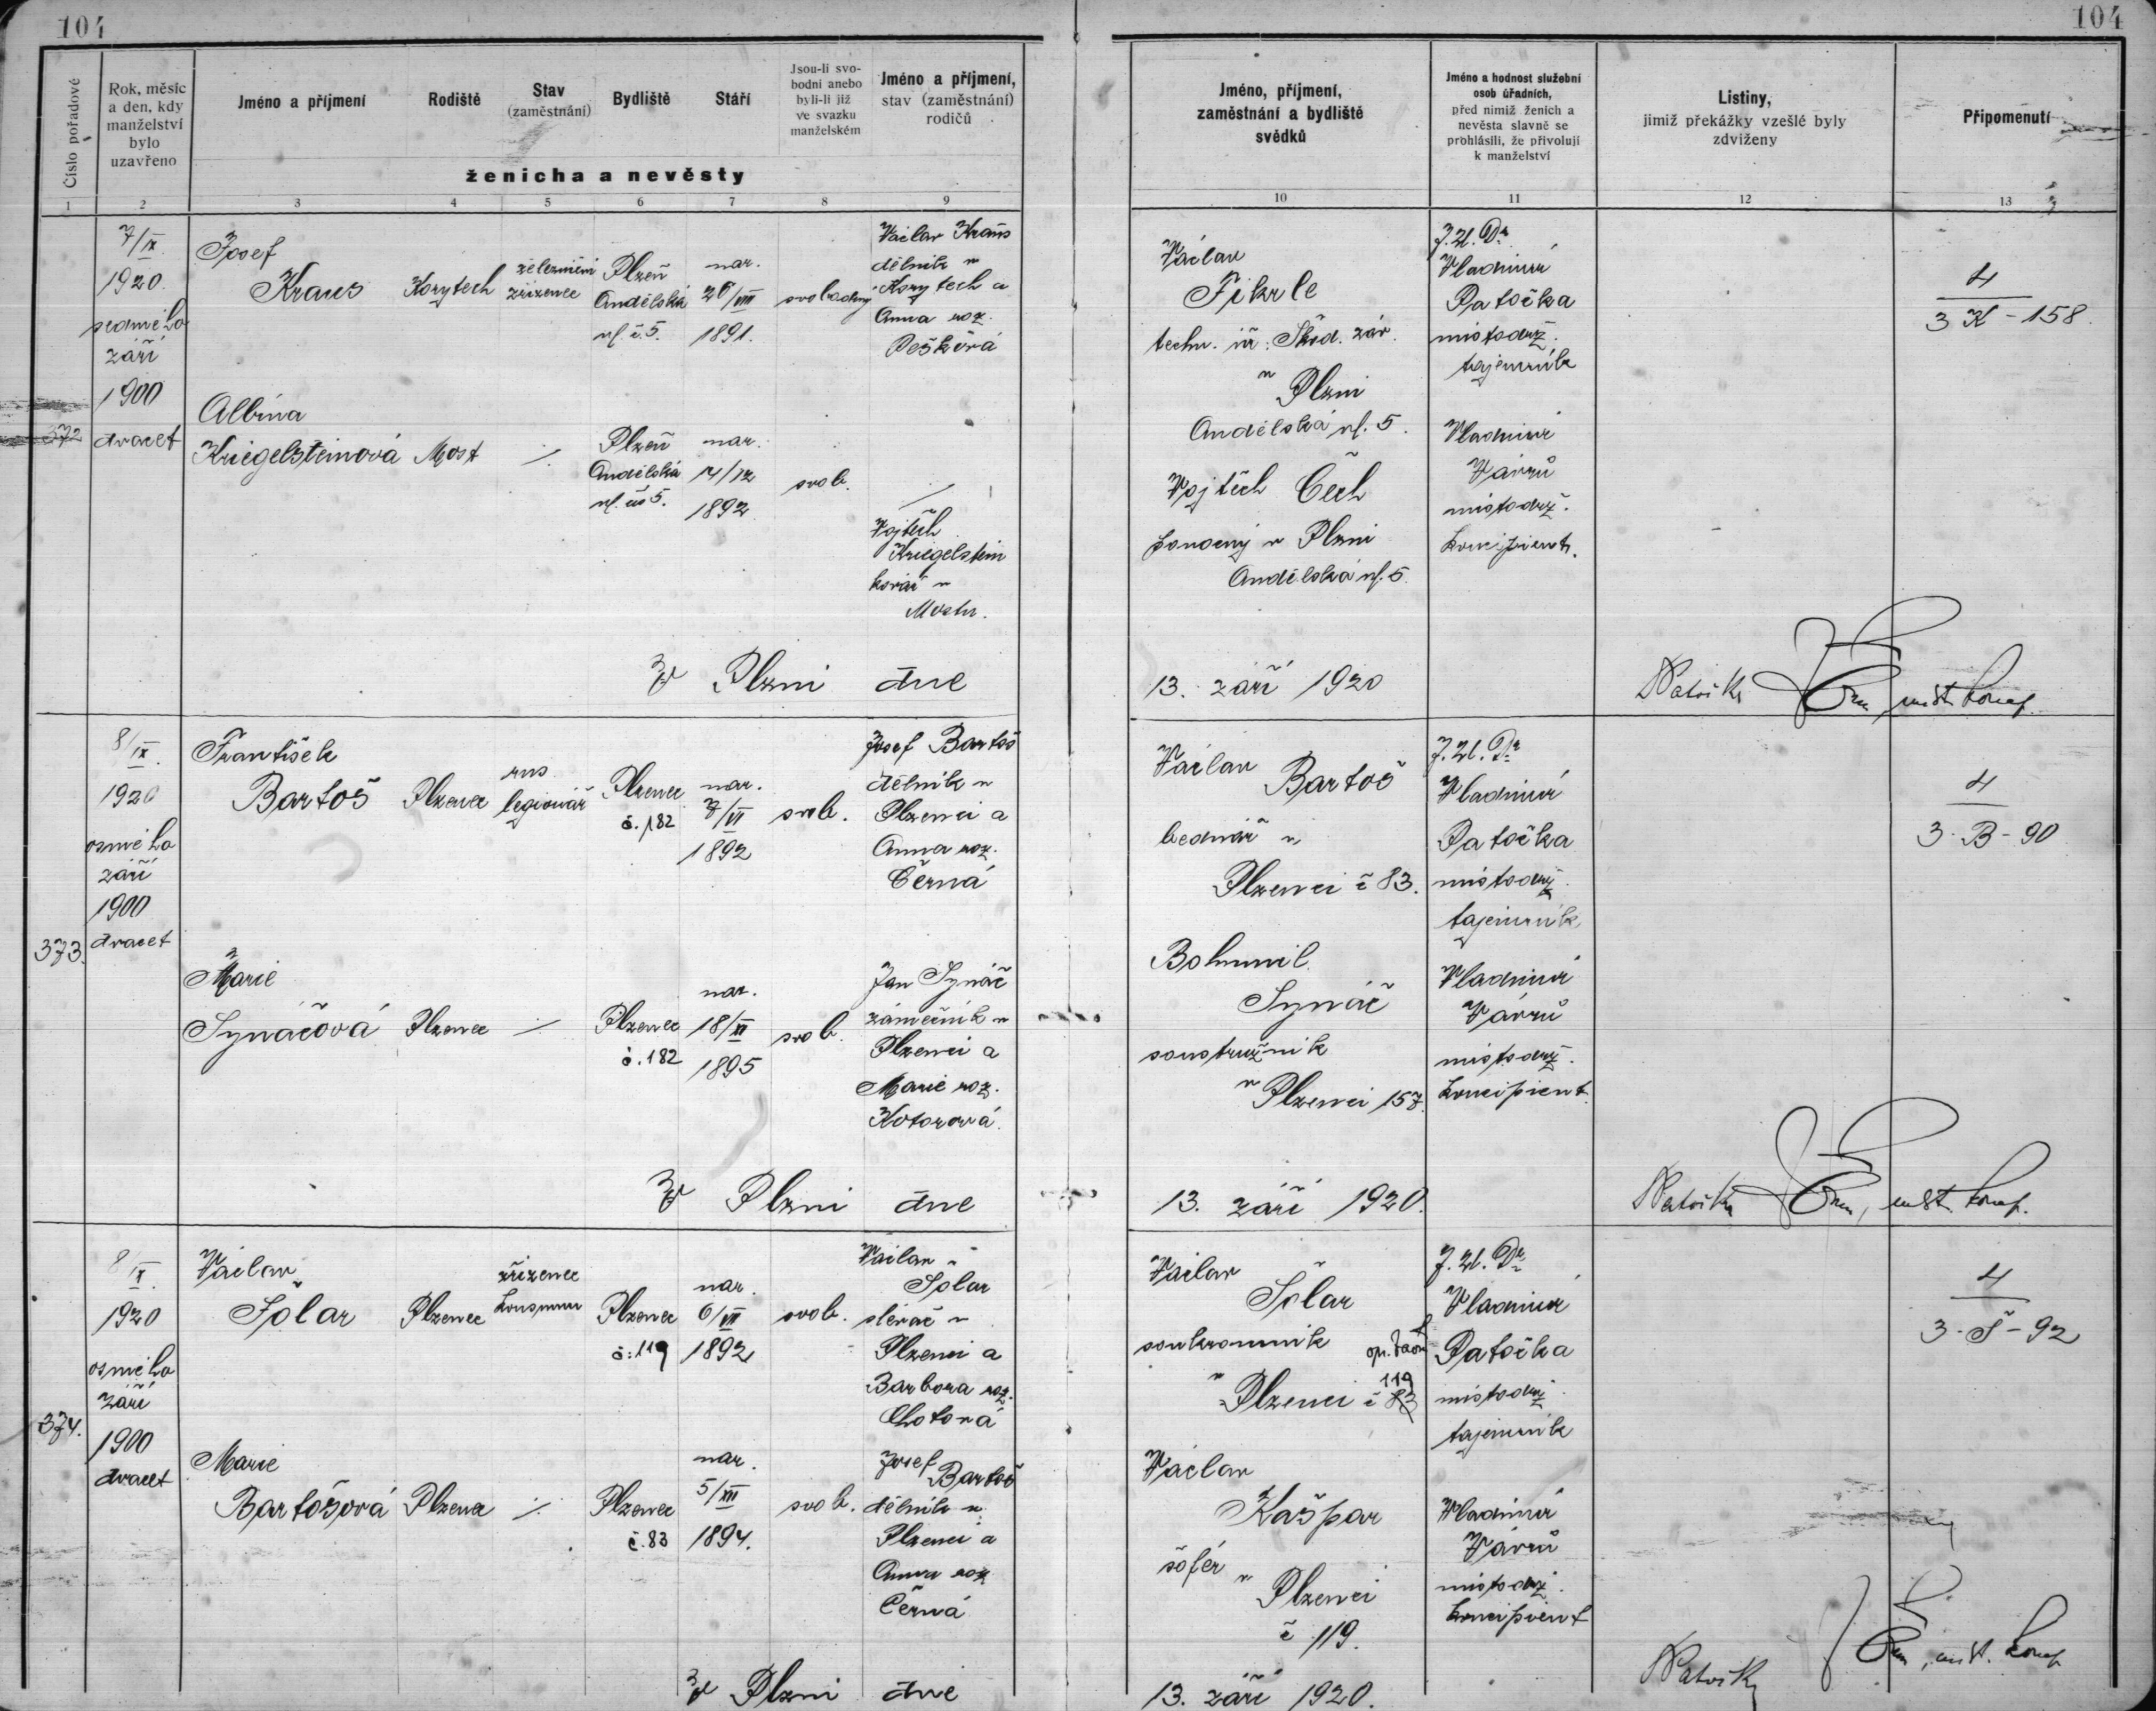 104
104
Číslo pořadové
Rok, měsíc
a den, kdy
manželství
bylo
uzavřeno
Jméno a příjmení
Rodiště
Stav
(zaměstnání)
Bydliště
Stáří
Jsou-li svo-
bodni anebo
byli-li již
ve svazku
manželském
Jméno a příjmení,
stav (zaměstnání)
rodičů
ženicha a nevěsty
Jméno, příjmení,
zaměstnání a bydliště
svědků
Jméno a hodnost služební
osob úřadních,
před nimiž ženich a
nevěsta slavně se
prohlásili, že přivolují
k manželství
Listiny,
jimiž překážky vzešlé byly
zdviženy
Připomenutí
1 2 3 4 5 6 7 8 9 10 11 12 13
372
7/IX.
1920.
sedmého
září
1900
dvacet
Josef
Kraus
Korytech
železniční
zřízenec
Plzeň
Andělská
ul. č. 5.
nar.
26/VIII
1891.
svobodný
Václav Kraus
dělník v
Korytech a
Anna roz.
Pešková
Albina
Kriegelsteinová
Most
Plzeň
Andělská
ul. čís 5.
nar.
14/12
1892
svob.
Vojtěch
Kriegelstein
kovář v
Mostu.
Václav
Fikrle
techn. úř. Škod. záv.
v Plzni
Andělská ul. 5.
Vojtěch Čech
v Plzni
Andělská ul. 5.
J.U.Dr
Vladimír
Patočka
místodrž.
tajemník
Vladimír
Vávrů
místodrž.
koncipient.
4
3 K - 158.
V Plzni dne
13. září 1920
Patočka
míst. konc.
373.
8/IX.
1920
osmého
září
1900
dvacet
František
Bartoš
Plzenec
rus.
legionář
Plzenec
č. 182
nar.
7/VI
1892
svob.
Josef Bartoš
dělník v
Plzenci a
Anna roz.
Černá
Marie
Synáčová
Plzenec
Plzenec
č. 182
nar.
18/XI
1895
svob.
Jan Synáč
zámečník v
Plzenci a
Marie roz.
Kotorová.
Václav
Bartoš
bednář v
Plzenci č 83.
Bohumil
Synáč
soustružník
v Plzenci 157.
J.U.Dr
Vladimír
Patočka
místodrž.
tajemník
Vladimír
Vávrů
místodrž.
koncipient.
4
3 - B - 90
V Plzni dne
13. září 1920.
Patočka
míst. konc.
374.
8/IX.
1920
osmého
září
1900
dvacet
Václav
Šolar
Plzenec
zřízenec
konsumu
Plzenec
č: 119
nar.
6/VII
1892
svob.
Václav
Šolar
slévač v
Plzenci a
Barbora roz.
Chotová
Marie
Bartošová
Plzenec
Plzenec
č. 83
nar.
5/XII
1894.
svob.
Josef
Bartoš
dělník v
Plzenci a
Anna roz
Černá
Václav
Šolar
soukromník
v Plzenci č 83
119
Václav
Kašpar
šofér v
Plzenci
č 119.
J.U.Dr
Vladimír
Patočka
místodrž.
tajemník
Vladimír
Vávrů
místodrž.
koncipient
4
3 - Š - 92
V Plzni dne
13. září 1920.
Patočka
míst. konc.